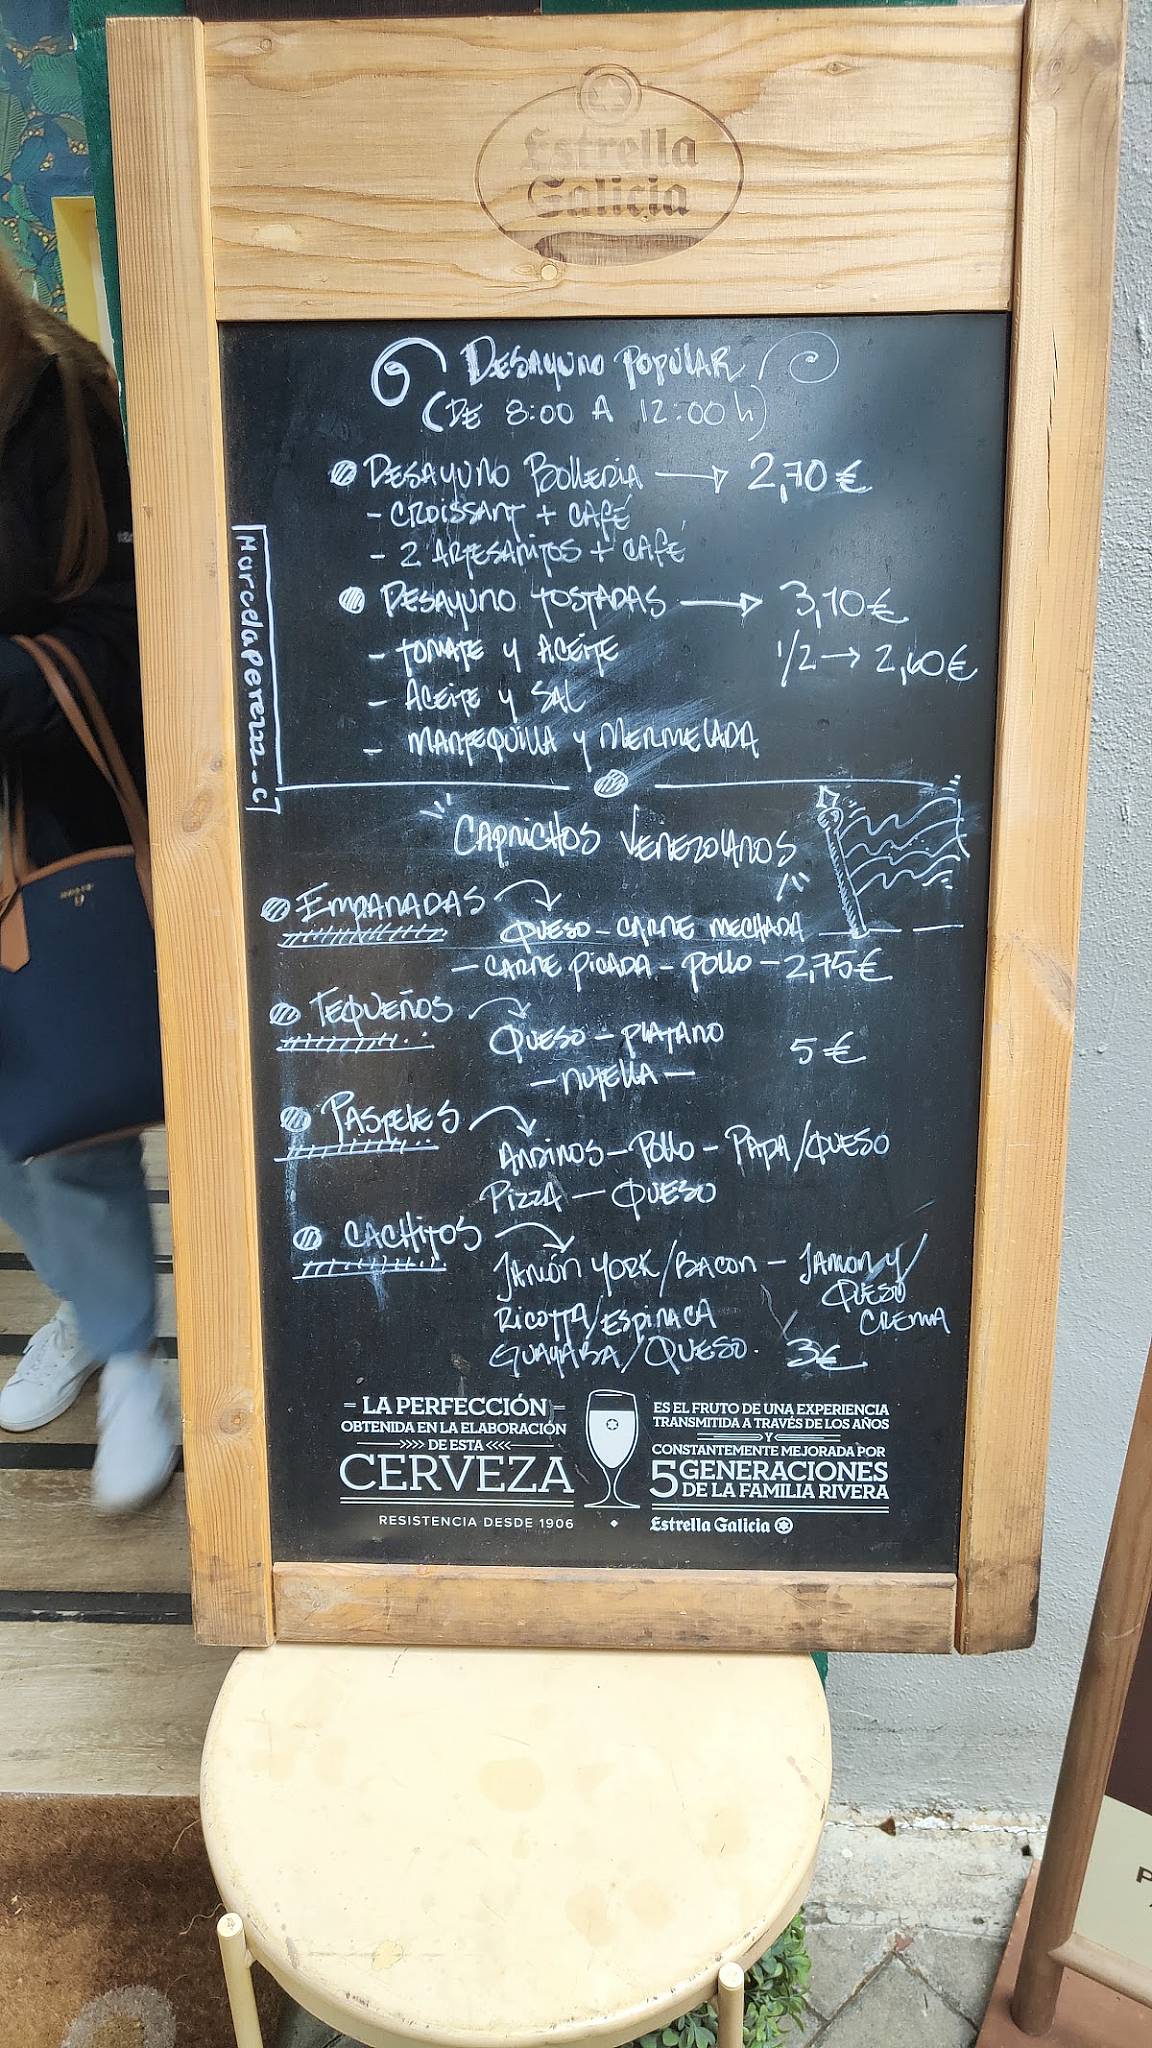 Estrella
Galicia
DESAYUNO POPULAR
(DE 8:00 A 12:00 h)
DESAYUNO BOLLERIA → 2,70 €
- CROISSANT + CAFÉ
- 2 ARTESANITOS + CAFÉ
DESAYUNO TOSTADAS → 3,10 €
- TOMATE Y ACEITE 1/2 → 2,60 €
- ACEITE Y SAL
- MANTEQUILLA Y MERMELADA
MarcelaPerezz-C
CAPRICHOS VENEZOLANOS
EMPANADAS
QUESO - CARNE MECHADA
- CARNE PICADA - POLLO - 2,75 €
TEQUEÑOS
QUESO - PLATANO 5 €
- NUTELLA -
PASTELES
ANDINOS - POLLO - PAPA/QUESO
PIZZA - QUESO
CACHITOS
JAMÓN YORK/BACON - JAMON Y
QUESO
CREMA
RICOTTA/ESPINACA
GUAYABA/QUESO. 3€
- LA PERFECCIÓN -
OBTENIDA EN LA ELABORACIÓN
>>>> DE ESTA <<<<
CERVEZA
RESISTENCIA DESDE 1906
ES EL FRUTO DE UNA EXPERIENCIA
TRANSMITIDA A TRAVÉS DE LOS AÑOS
Y
CONSTANTEMENTE MEJORADA POR
5 GENERACIONES
DE LA FAMILIA RIVERA
Estrella Galicia